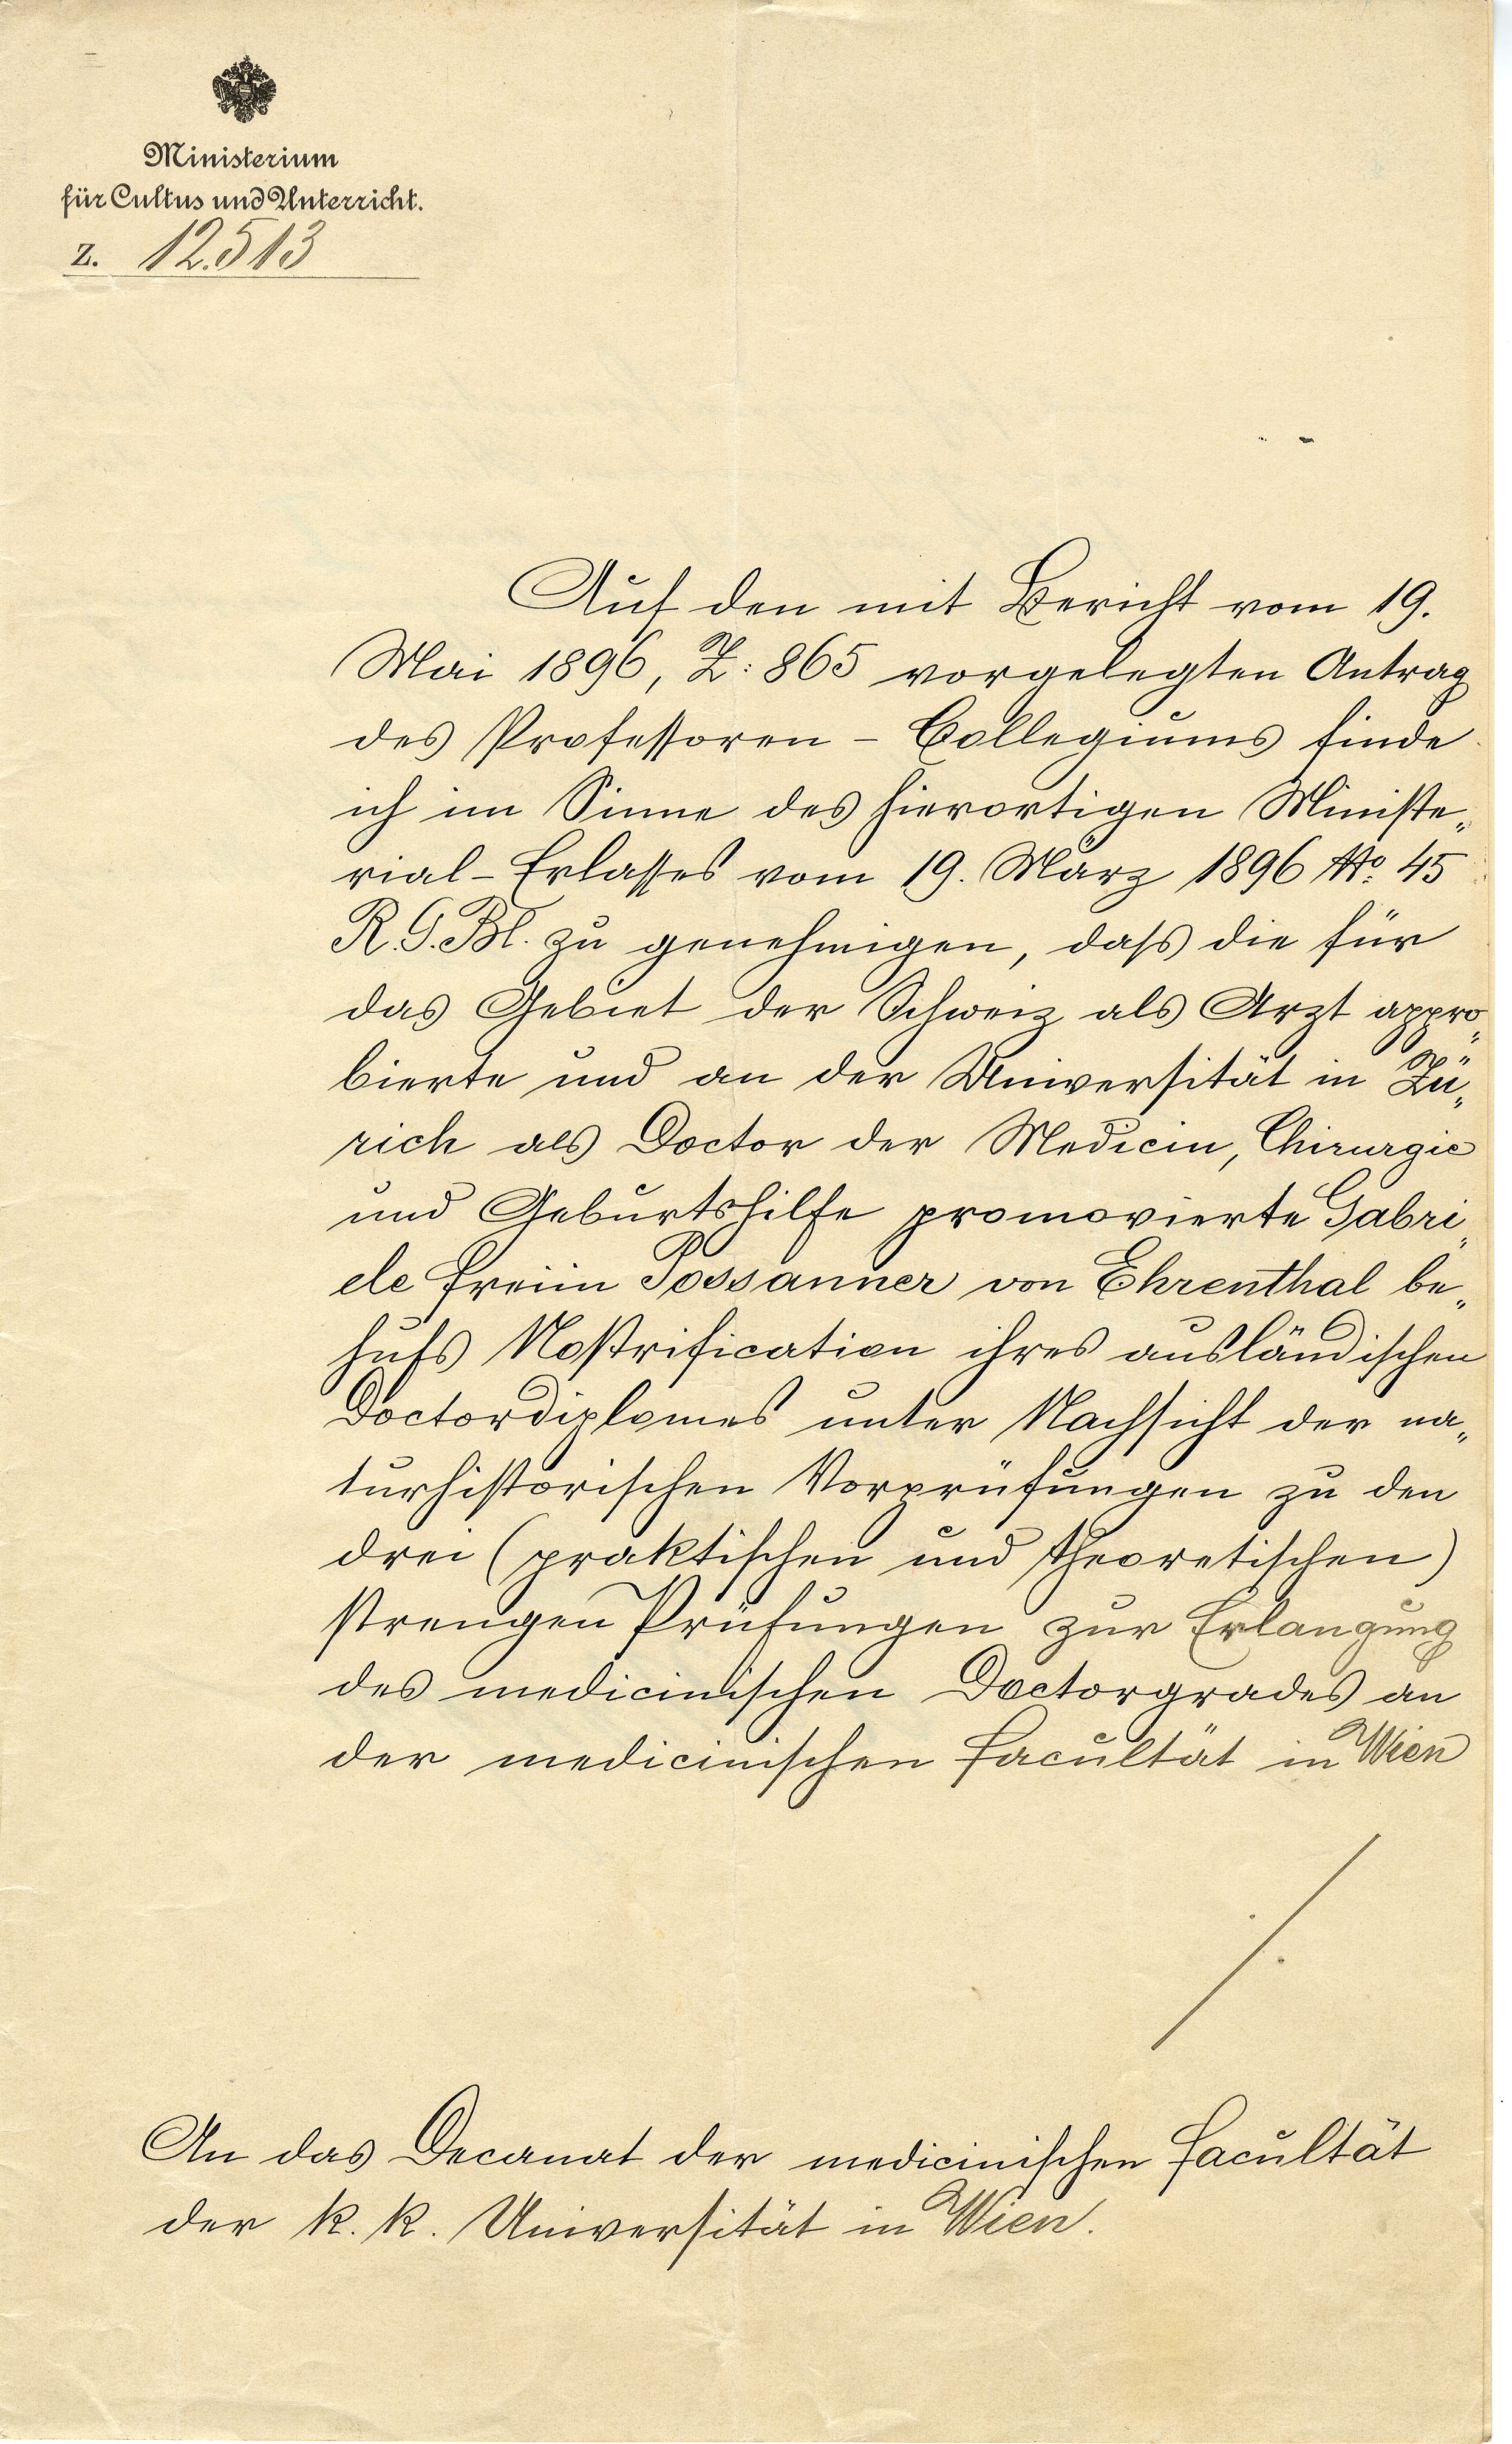 Ministerium
für Cultus und Unterricht.
Z. 12.513
Auf den mit Bericht vom 19.
Mai 1896, Z: 865 vorgelegten Antrag
des Professoren - Collegiums finde
ich im Sinne des hierortigen Ministe„
rial-Erlasses vom 19. März 1896 No. 45
R.G.Bl. zu genehmigen, dass die für
das Gebiet der Schweiz als Arzt appro„
bierte und an der Universität in Zü„
rich als Doctor der Medicin, Chirurgie
und Geburtshilfe promovierte Gabri„
ele Freiin Possanner von Ehrenthal be„
hufs Nostrification ihres ausländischen
Doctordiplomes unter Nachsicht der na„
turhistorischen Vorprüfungen zu den
drei (praktischen und theoretischen)
strengen Prüfungen zur Erlangung
des medicinischen Doctorgrades an
der medicinischen Facultät in Wien
./.
An das Decanat der medicinischen Facultät
der k. k. Universität in Wien.